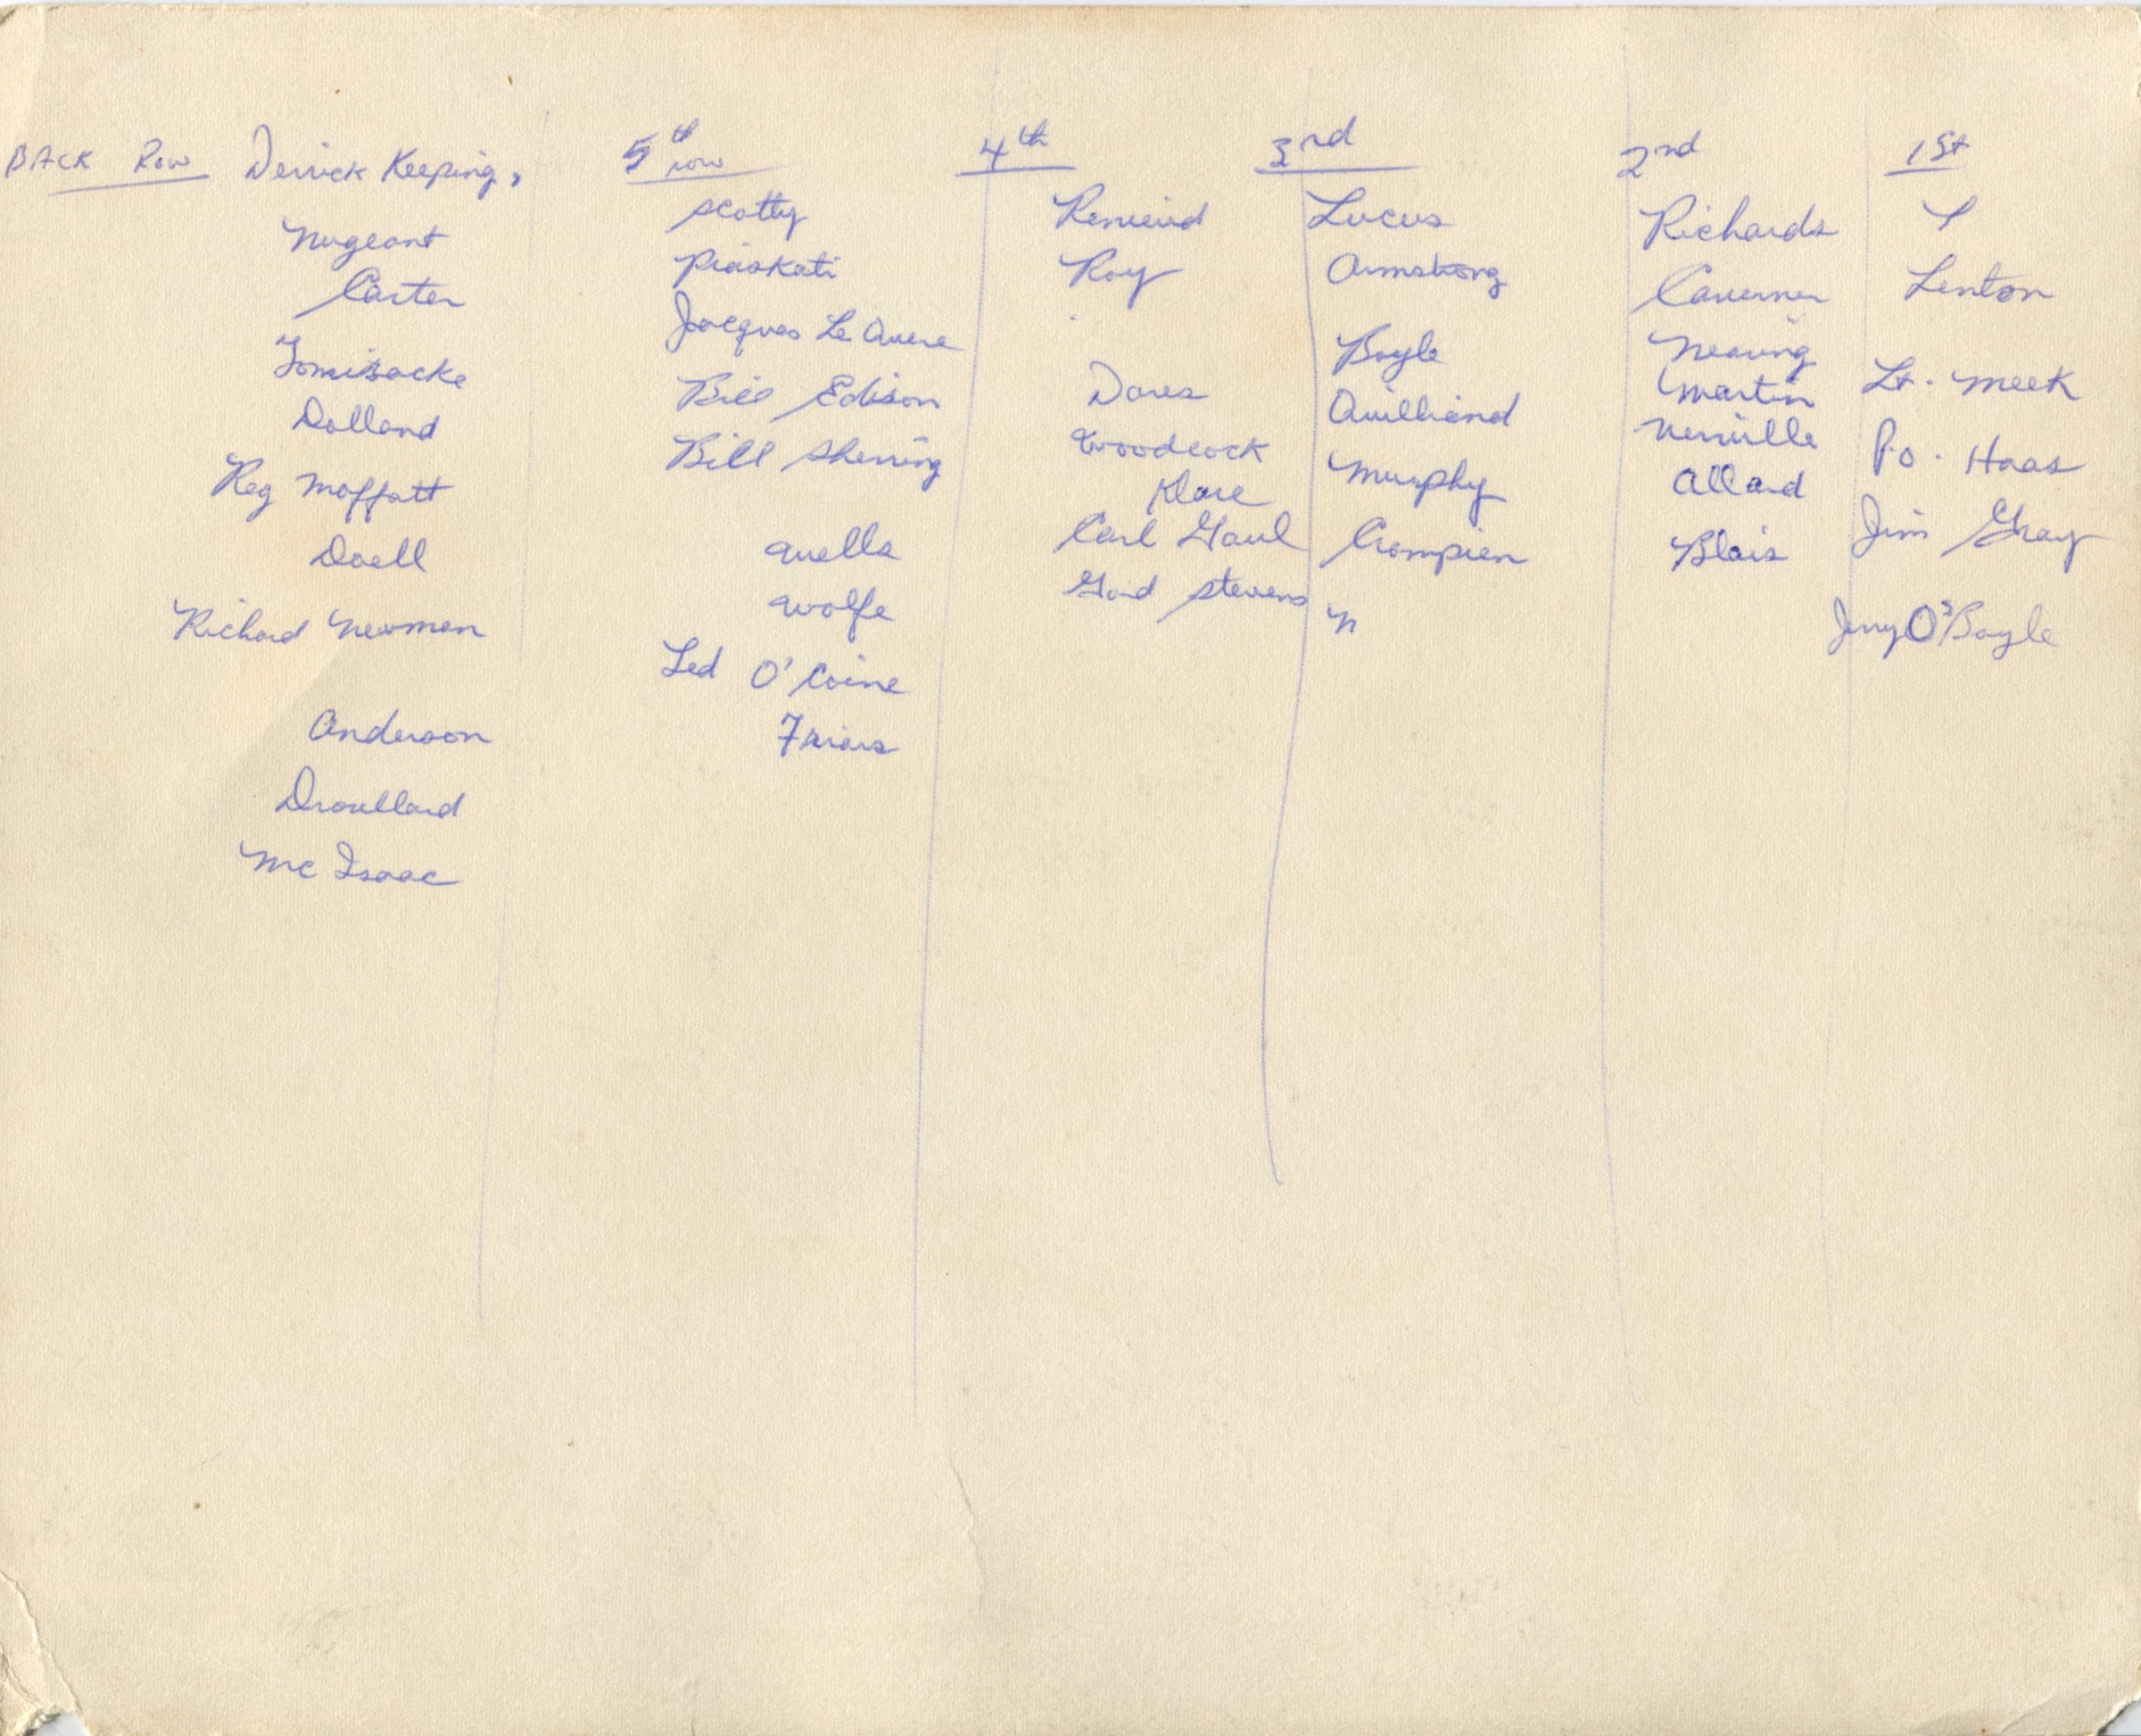 BACK Row
Derrick Keeping,
Nugeant
Carter
Dolland
Reg Moffatt
Doell
Richard Newman
Anderson
Droullard
Mc Isaac
5th row
Scotty
Piaskoti
Jacques Le Quere
Bill Edison
Bill Sherring
Quells
Wolfe
Led O'Coine
Friars
4th
Roy
Dares
Woodcock
Klare
Carl Gaul
Gord Stevens
3rd
Lucus
Armstrong
Boyle
Murphy
Crompien
N
2nd
Richards
Nearing
Martin
Nerville
Allard
Blais
1st
L
Lenton
Lt. Meek
Po. Haas
Jim Gray
Jerry O'Boyle